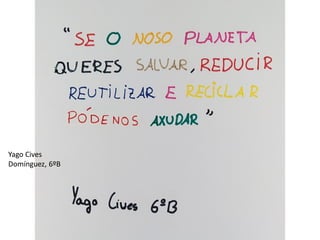 "SE O NOSO PLANETA
QUERES SALVAR, REDUCIR
REUTILIZAR E RECICLAR
PÓDENOS AXUDAR"
Yago Cives
Domínguez, 6ºB
Yago Cives 6ºB